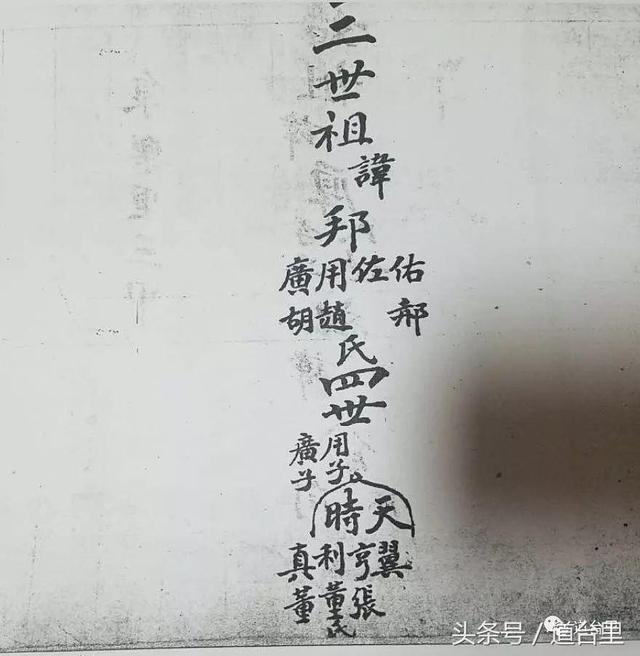 三
世
祖
諱
邦
廣用佐佑
胡趙郝
氏
四
世
廣子 用子
時天
真利亨翼
董董張
氏
头条号 / 道台里